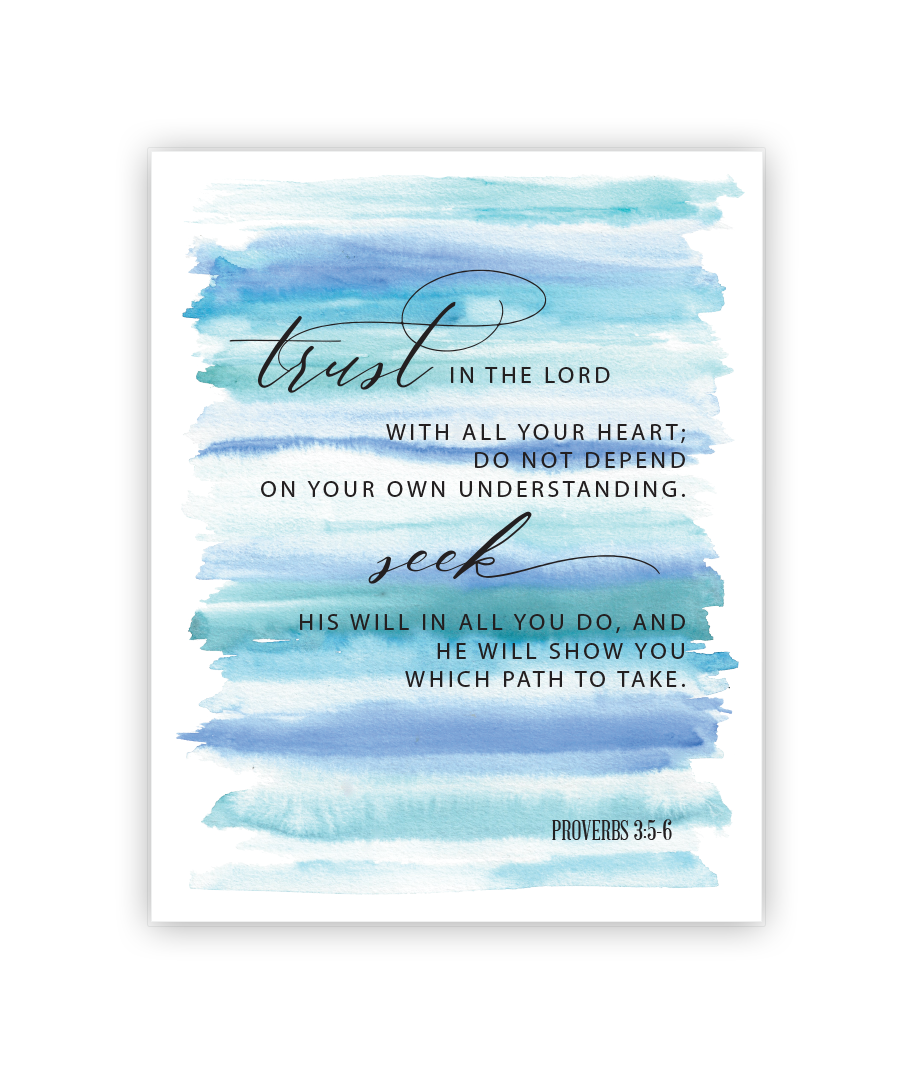 trust IN THE LORD
WITH ALL YOUR HEART;
DO NOT DEPEND
ON YOUR OWN UNDERSTANDING.
seek
HIS WILL IN ALL YOU DO, AND
HE WILL SHOW YOU
WHICH PATH TO TAKE.
PROVERBS 3:5-6